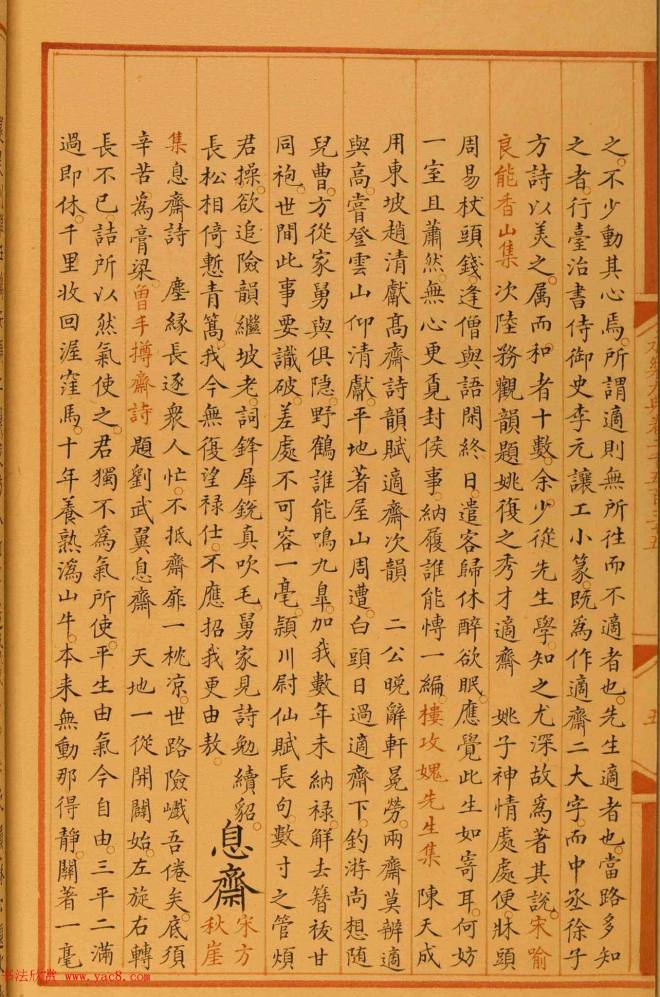 之。不少動其心焉。所謂適則無所往而不適者也。先生適者也。當路多知
之者。行臺治書侍御史李元讓工小篆。既為作適齋二大字。而中丞徐子
方詩以美之。属而和者十數。余少從先生學。知之尤深。故為著其說。宋喻
良能香山集 次陸務觀韻題姚復之秀才適齋 姚子神情處處便。牀頭
周易杖頭錢。逢僧與語閑終日。遣客歸休醉欲眠。應覺此生如寄耳。何妨
一室且蕭然。無心更覓封侯事。納履誰能慱一編。樓攻媿先生集 陳天成
用東坡趙清獻高齋詩韻賦適齋次韻 二公晚辭軒冕勞。兩齋莫辨適
與高。嘗登雲山仰清獻。平地著屋山周遭。白頭日過適齋下。釣游尚想隨
兒曹。方從家舅與俱隐。野鶴誰能鳴九臯。加我數年未納禄。解去簪祓甘
同袍。世間此事要識破。差處不可容一毫。潁川尉仙賦長句。數寸之管煩
君操。欲追險韻繼坡老。詞鋒犀銳真吹毛。舅家見詩勉續貂。息齋 宋方秋崖
長松相倚慙青蒿。我今無復望禄仕。不應招我更由敖。
集息齋詩 塵緣長逐衆人忙。不抵齋扉一枕凉。世路險巇吾倦矣。底須
辛苦為膏梁。曾手摶齋詩題劉武翼息齋 天地一從開闢始。左旋右轉
長不已。詰所以然氣使之。君獨不為氣所使。平生由氣今自由。三平二滿
過即休。千里收回渥窪馬。十年養熟溈山牛。本来無動那得靜。關著一毫
五
书法欣赏 www.yac8.com